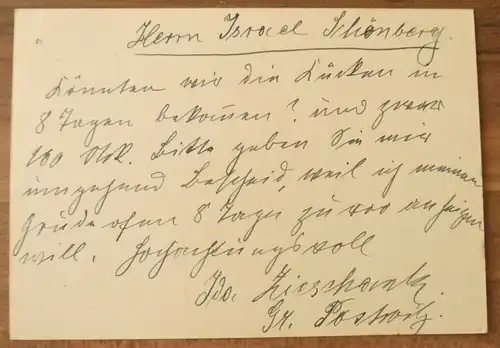 Herrn Israel Schönberg.
Könnten wir die Kücken in
8 Tagen bekommen? und zwar
100 Stk. Bitte geben Sie mir
umgehend Bescheid, weil ich meinen
Grudeofen 8 Tage zuvor anheizen
will. Hochachtungsvoll
Ida
Gr. Postwitz.